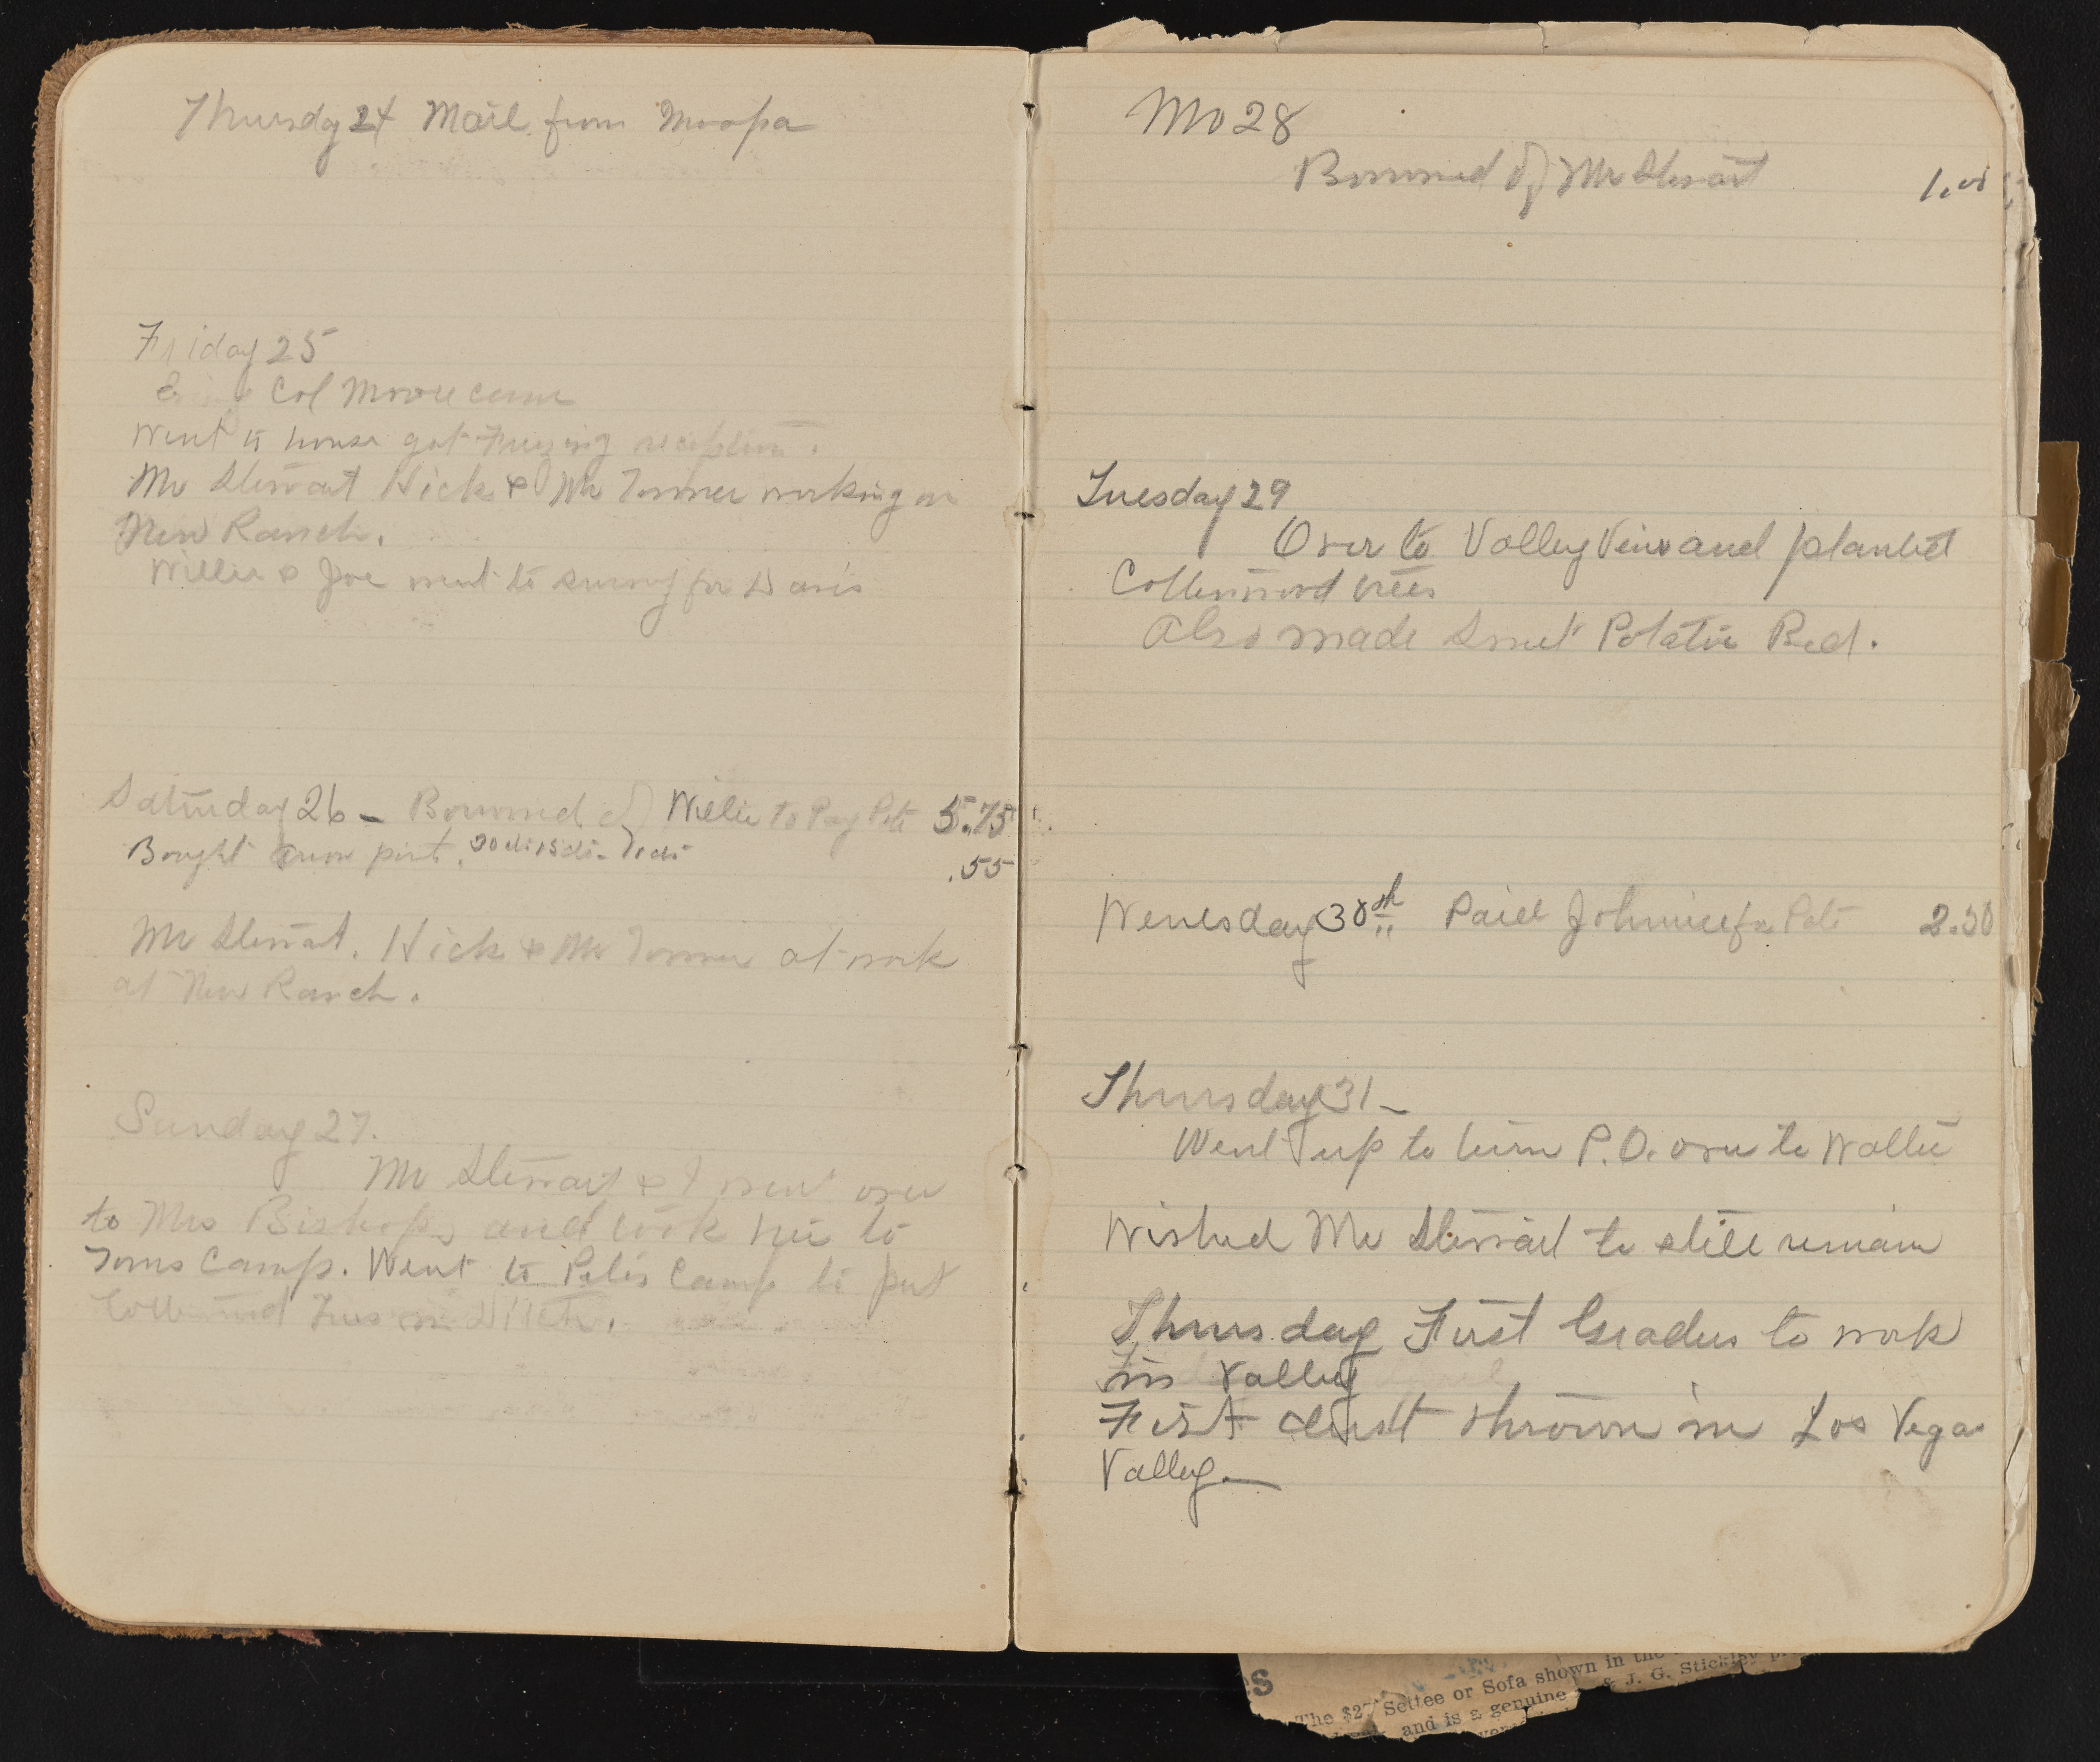 Thursday 24 Mail from Moapa
Friday 25
Col Moore came
Went to house got Freezing reception.
Mr Stewart Hick & Mr Tonner working on
New Ranch.
Willie & Joe went to survey for Davis
Saturday 26 - Borrowed of Willie to Pay Pete 5.75
Bought pint. .55
Mr Stewart. Hick & Mr Tonner at work
at New Ranch.
Sunday 27.
Mr Stewart & I went over
to Mrs Bishops and took her to
Toms Camp. Went to Petes Camp to put
Cottonwood Trees in Ditch.
Mo 28
Borrowed of Mr Stewart 1.00
Tuesday 29
Over to Valley View and planted
Cottonwood trees
Also made Sweet Potatoe Bed.
Wenesday 30th Paid Johnnie for Pete 2.50
Thursday 31 -
Went up to turn P.O. over to Wallie
Wished Mr Stewart to still remain
Thursday First Graders to work
in Valley
First dirt thrown in Los Vegas
Valley.
The $27 Settee or Sofa shown in the
and is a genuine & J. G. Stickley